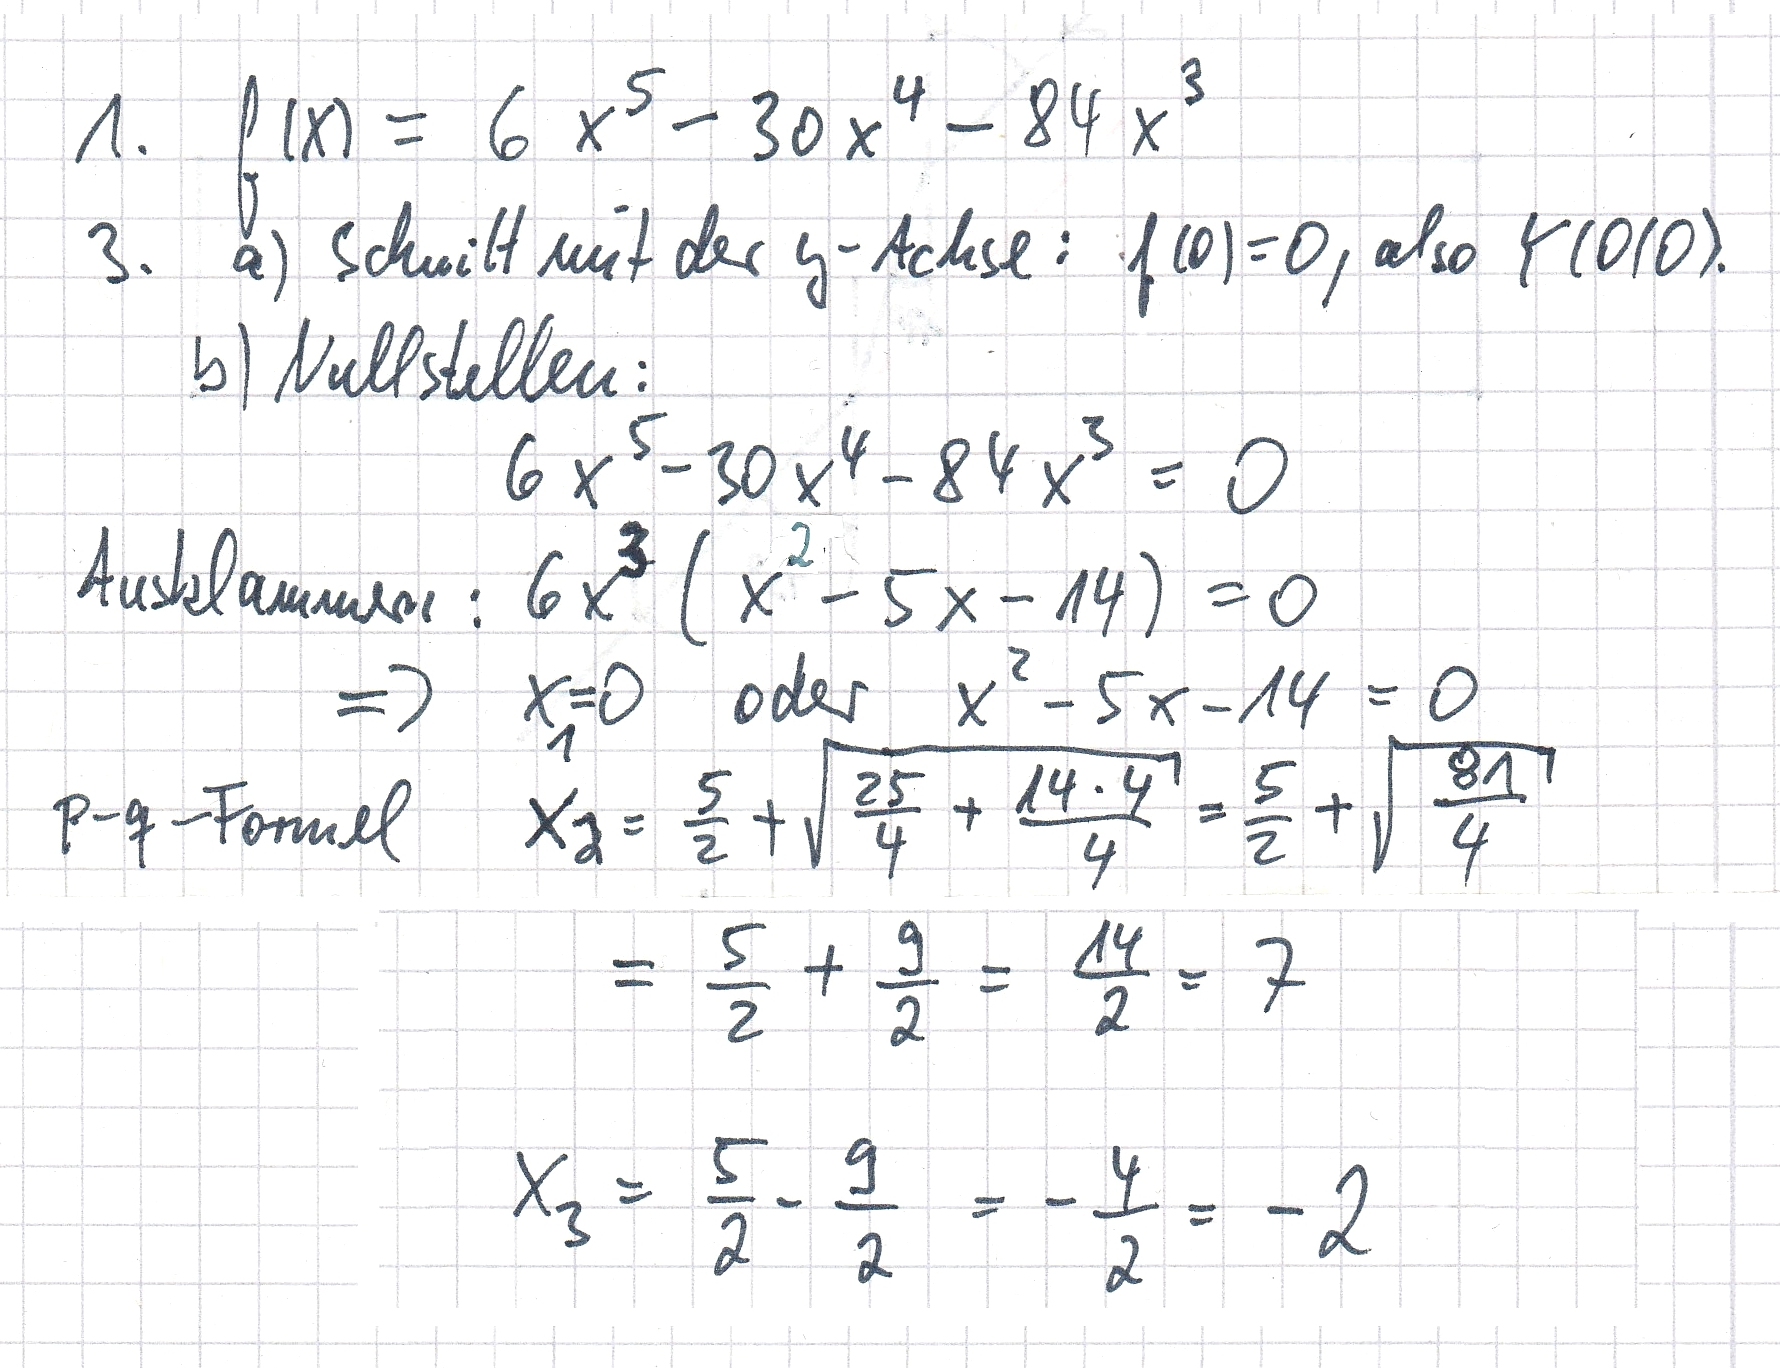 1. f(x) = 6x⁵ - 30x⁴ - 84x³
3. a) Schnitt mit der y-Achse: f(0)=0, also Y(0|0).
b) Nullstellen:
6x⁵ - 30x⁴ - 84x³ = 0
Ausklammern: 6x³ (x² - 5x - 14) = 0
=> x₁=0 oder x² - 5x - 14 = 0
p-q-Formel x₂ = 5/2 + √(25/4 + 14·4/4) = 5/2 + √(81/4)
= 5/2 + 9/2 = 14/2 = 7
x₃ = 5/2 - 9/2 = -4/2 = -2